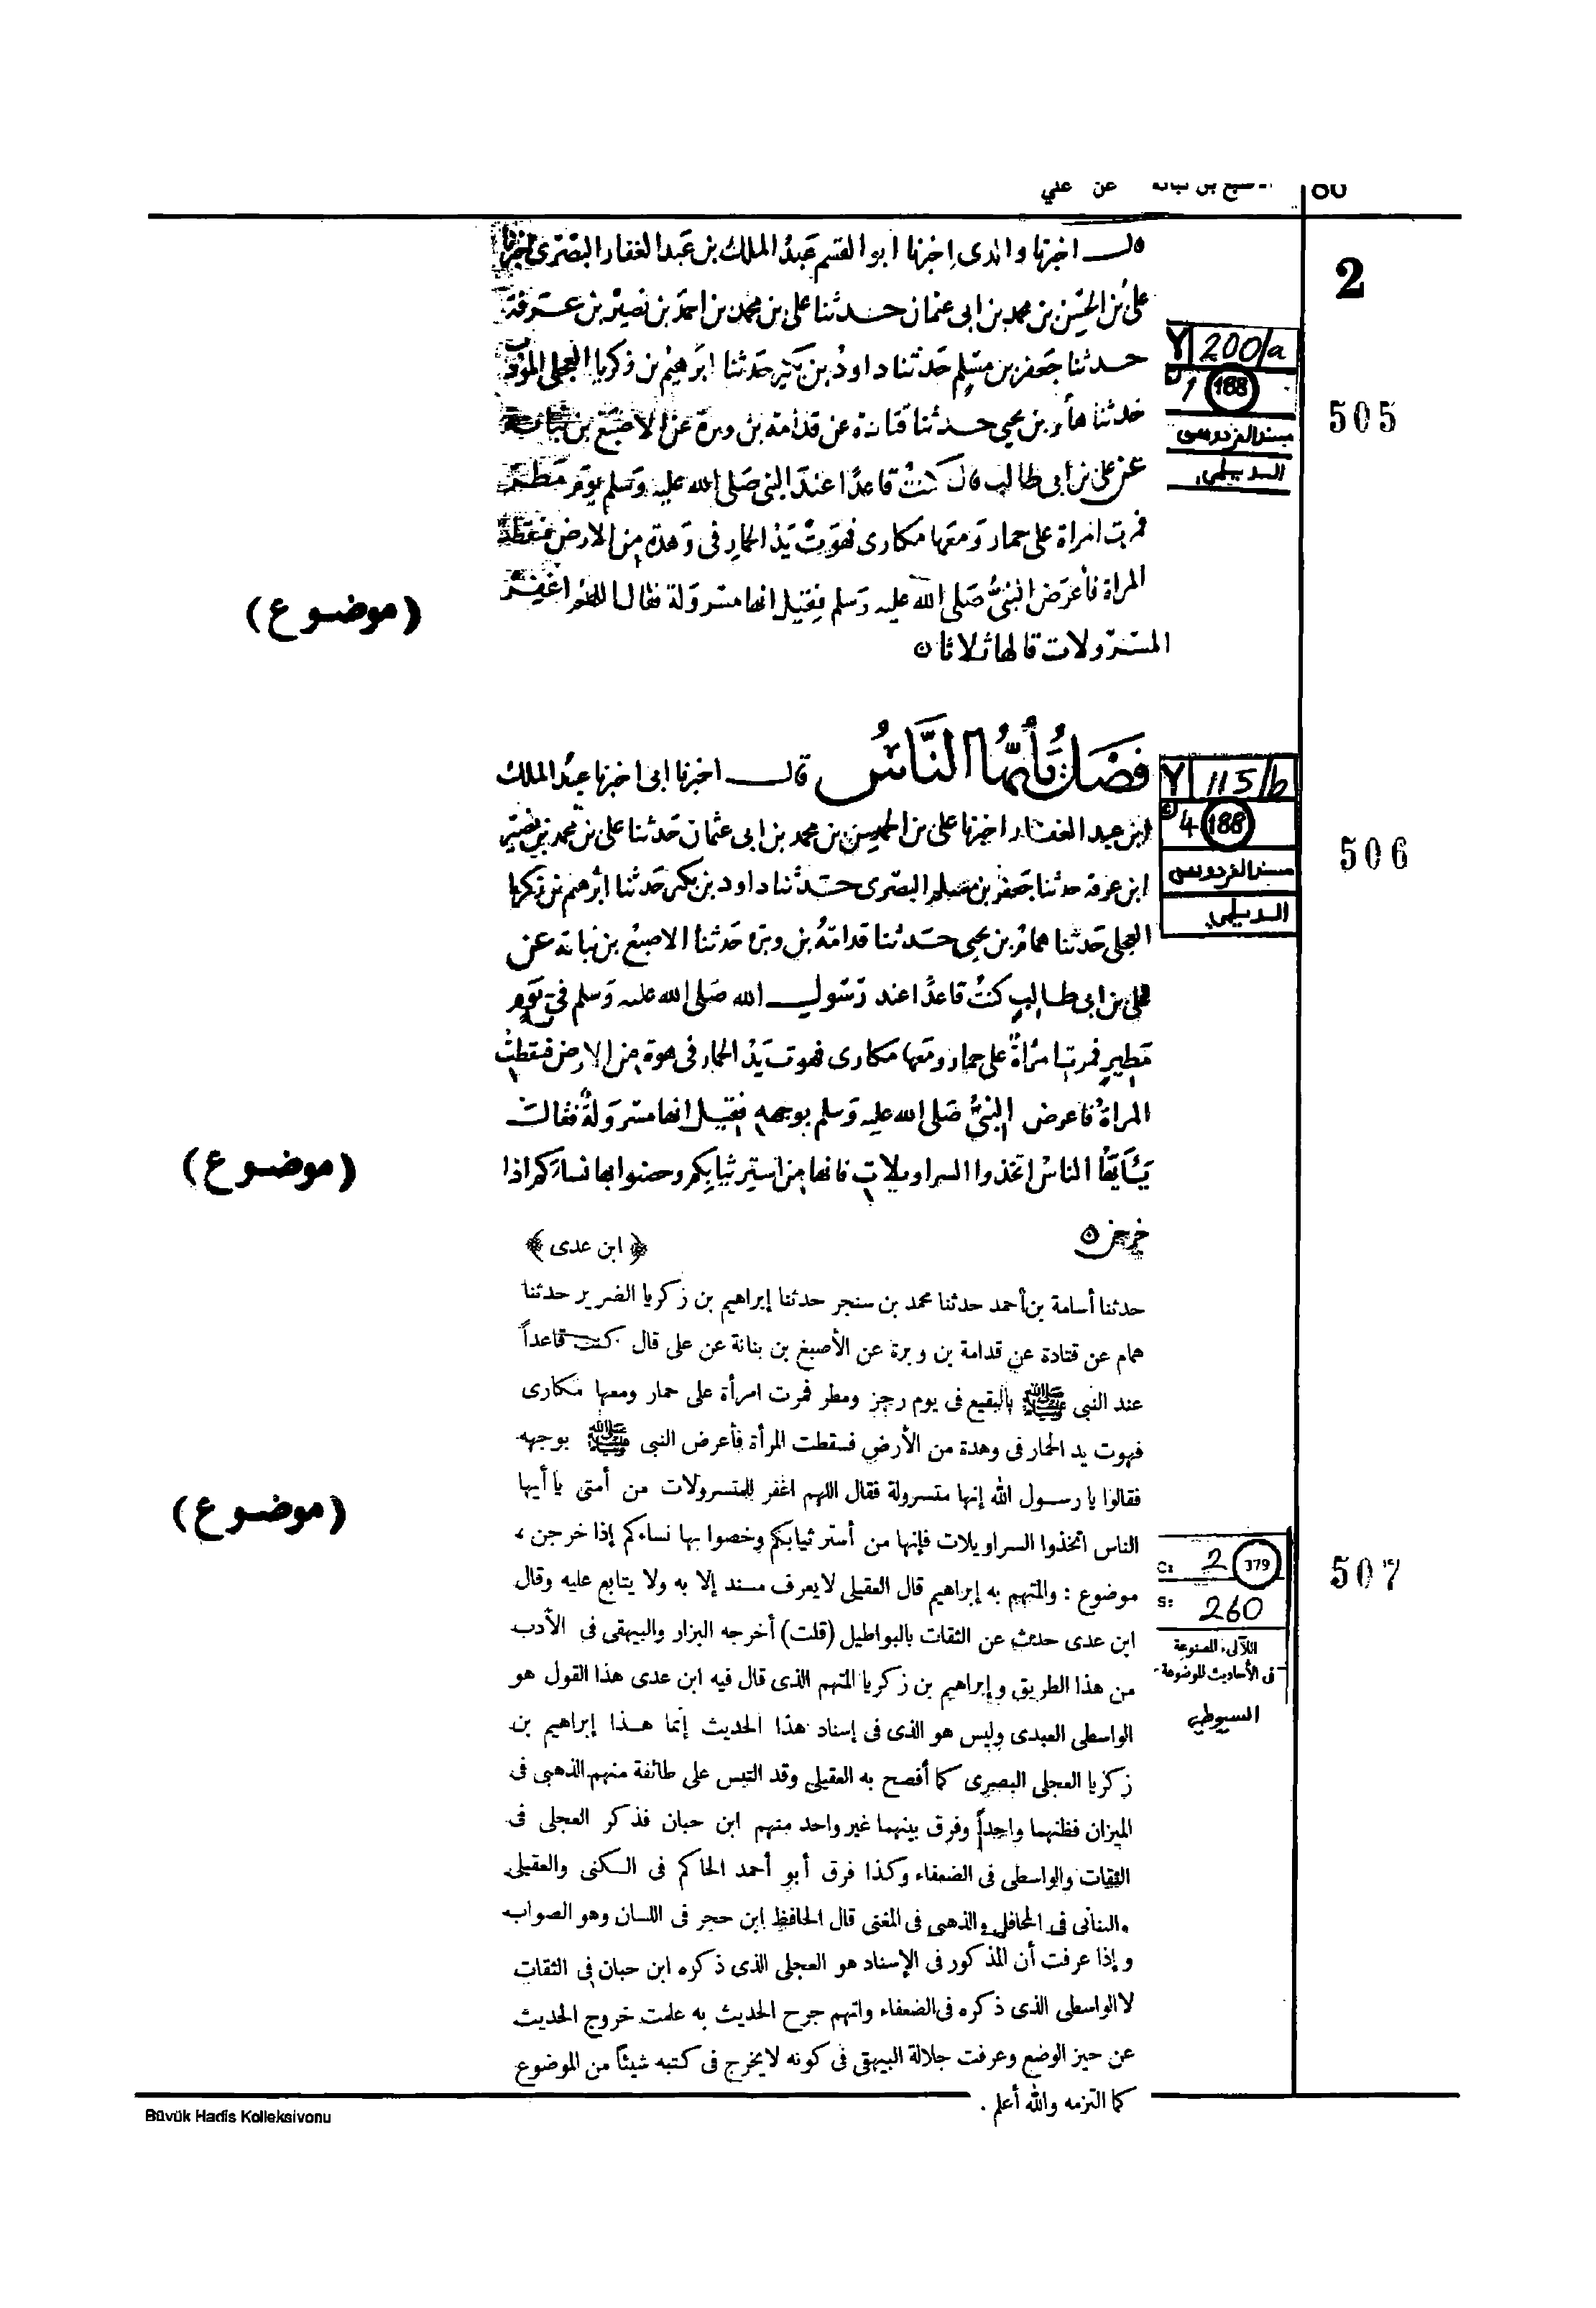 عن علي
2
قال اخبرنا والدى اخبرنا ابو القسم عبد الملك بن عبد الغفار البصرى اخبرنا
على بن الحسين بن محمد بن ابى عثمان حدثنا على بن محمد بن احمد بن نصير بن عرفة
حدثنا جعفر بن مسلم حدثنا داود بن حدثنا ابرهيم بن زكريا العجلى
حدثنا همام بن يحيى حدثنا قتادة عن قدامة بن وبرة عن الاصبغ بن نباتة
عن على بن أبى طالب قال كنت قاعدًا عند النبى صلى الله عليه وسلم يوم مطير
فمرت امراة على حمار ومعها مكارى فهوت يد الحمار فى وهدة من الارض فسقطت
المراة فأعرض النبىُّ صلى الله عليه وسلم فقيل انها متسرولة فقال اللهم اغفر
المتسرولات قالها ثلاثا ه
(موضوع)
Y 200/a
1 188
مسند الفردوس
الديلمى
505
فصل يأيها الناس قال اخبرنا ابى اخبرنا عبد الملك
ابن عبد الغفار اخبرنا على بن الحسين بن محمد بن ابى عثمان حدثنا على بن محمد بن نصير
ابن عرفة حدثنا جعفر بن مسلم البصرى حدثنا داود بن بكر حدثنا ابرهيم بن زكريا
العجلى حدثنا همام بن يحيى حدثنا قدامة بن وبرة حدثنا الاصبغ بن نباتة عن
على بن ابى طالب كنت قاعدًا عند رسول الله صلى الله عليه وسلم فى يوم
مطير فمرت امرأة على حمار ومعها مكارى فهوت يد الحمار فى هوة من الارض فسقطت
المراة فاعرض النبىُّ صلى الله عليه وسلم بوجهه فقيل انها متسرولة فقالت
يأيها الناس اتخذوا السراويلات فانها من استر ثيابكم وحصنوا بها نساءكم اذا
خرجن ه
(موضوع)
Y 115/b
4 188
مسند الفردوس
الديلمى
506
﴿ ابن عدى ﴾
حدثنا أسامة بن أحمد حدثنا محمد بن سنجر حدثنا إبراهيم بن زكريا الضرير حدثنا
همام عن قتادة عن قدامة بن وبرة عن الأصبغ بن بنانة عن على قال كنت قاعداً
عند النبى ﷺ بالبقيع فى يوم رجز ومطر فمرت امرأة على حمار ومعها مكارى
فهوت يد الحمار فى وهدة من الأرض فسقطت المرأة فأعرض النبى ﷺ بوجهه
فقالوا يا رسول الله إنها متسرولة فقال اللهم اغفر للمتسرولات من أمتى يا أيها
الناس اتخذوا السراويلات فإنها من أستر ثيابكم وخصوا بها نساءكم إذا خرجن ،
موضوع : والمتهم به إبراهيم قال العقيلى لا يعرف مسند إلا به ولا يتابع عليه وقال
ابن عدى حدث عن الثقات بالبواطيل (قلت) أخرجه البزار والبيهقى فى الأدب
من هذا الطريق وإبراهيم بن زكريا المتهم الذى قال فيه ابن عدى هذا القول هو
الواسطى العبدى وليس هو الذى فى إسناد هذا الحديث إنما هذا إبراهيم بن
زكريا العجلى البصرى كما أفصح به العقيلى وقد التبس على طائفة منهم الذهبى فى
الميزان فظنهما واحداً وفرق بينهما غير واحد منهم ابن حبان فذكر العجلى فى
الثقات والواسطى فى الضعفاء وكذا فرق أبو أحمد الحاكم فى الكنى والعقيلى
والبنانى فى المحافل والذهبى فى المغنى قال الحافظ ابن حجر فى اللسان وهو الصواب
وإذا عرفت أن المذكور فى الإسناد هو العجلى الذى ذكره ابن حبان فى الثقات
لا الواسطى الذى ذكره فى الضعفاء واتهم جرح الحديث به علمت خروج الحديث
عن حيز الوضع وعرفت جلالة البيهقى فى كونه لا يخرج فى كتبه شيئاً من الموضوع
كما التزمه والله أعلم .
(موضوع)
C: 2 379
S: 260
اللآلىء المصنوعة
فى الأحاديث الموضوعة
السيوطى
507
Büyük Hadis Kolleksivonu